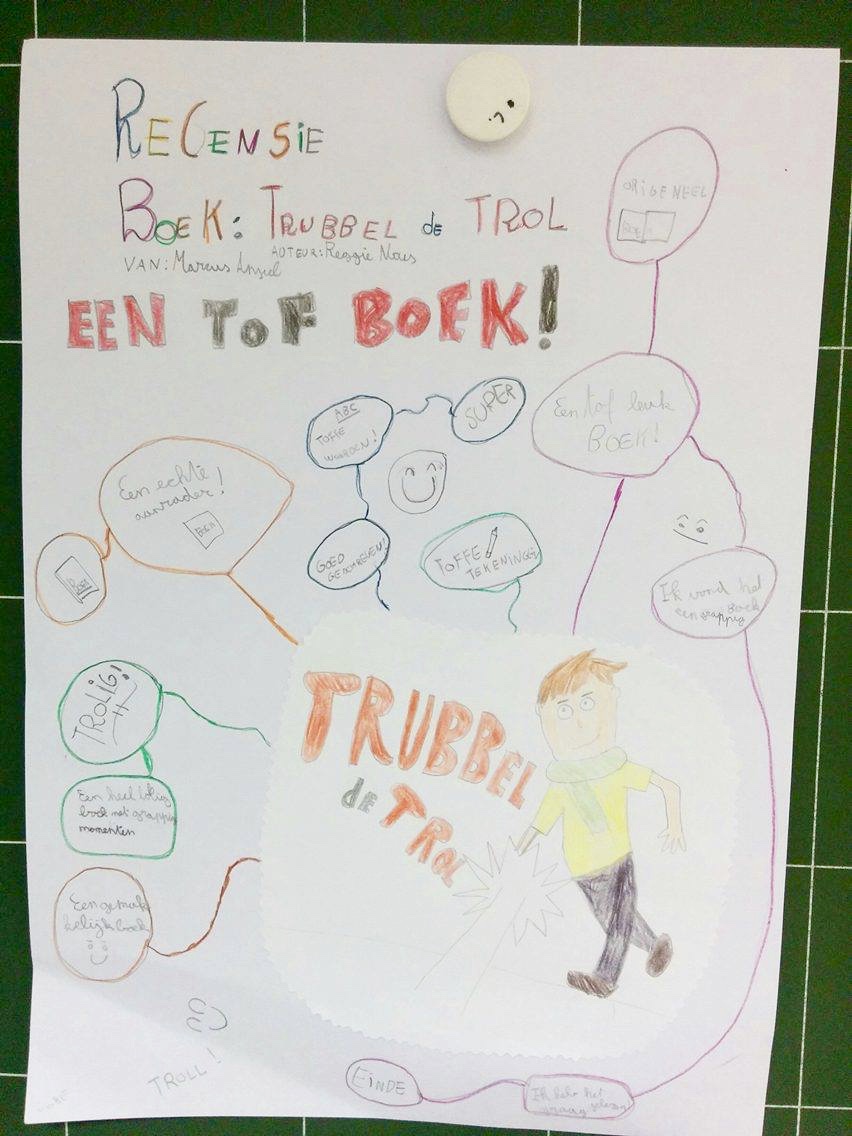 RECENSIE
BOEK: TRUBBEL de TROL
VAN: Marcus AUTEUR: Reggie Naus
EEN TOF BOEK!
ORIGENEEL
BOEK
Een tof leuk
BOEK!
ABC
TOFFE
WOORDEN!
SUPER
Een echte
aanrader!
BOEK
BOEK
GOED
GESCHREVEN!
TOFFE
TEKENINGEN
Ik vond het
een grappig
boek
TROLIG!
Een heel lollig
boek met grappige
momenten
TRUBBEL
de TROL
Een gemak
kelijk boek
TROLL!
EINDE
Ik heb het
graag gelezen